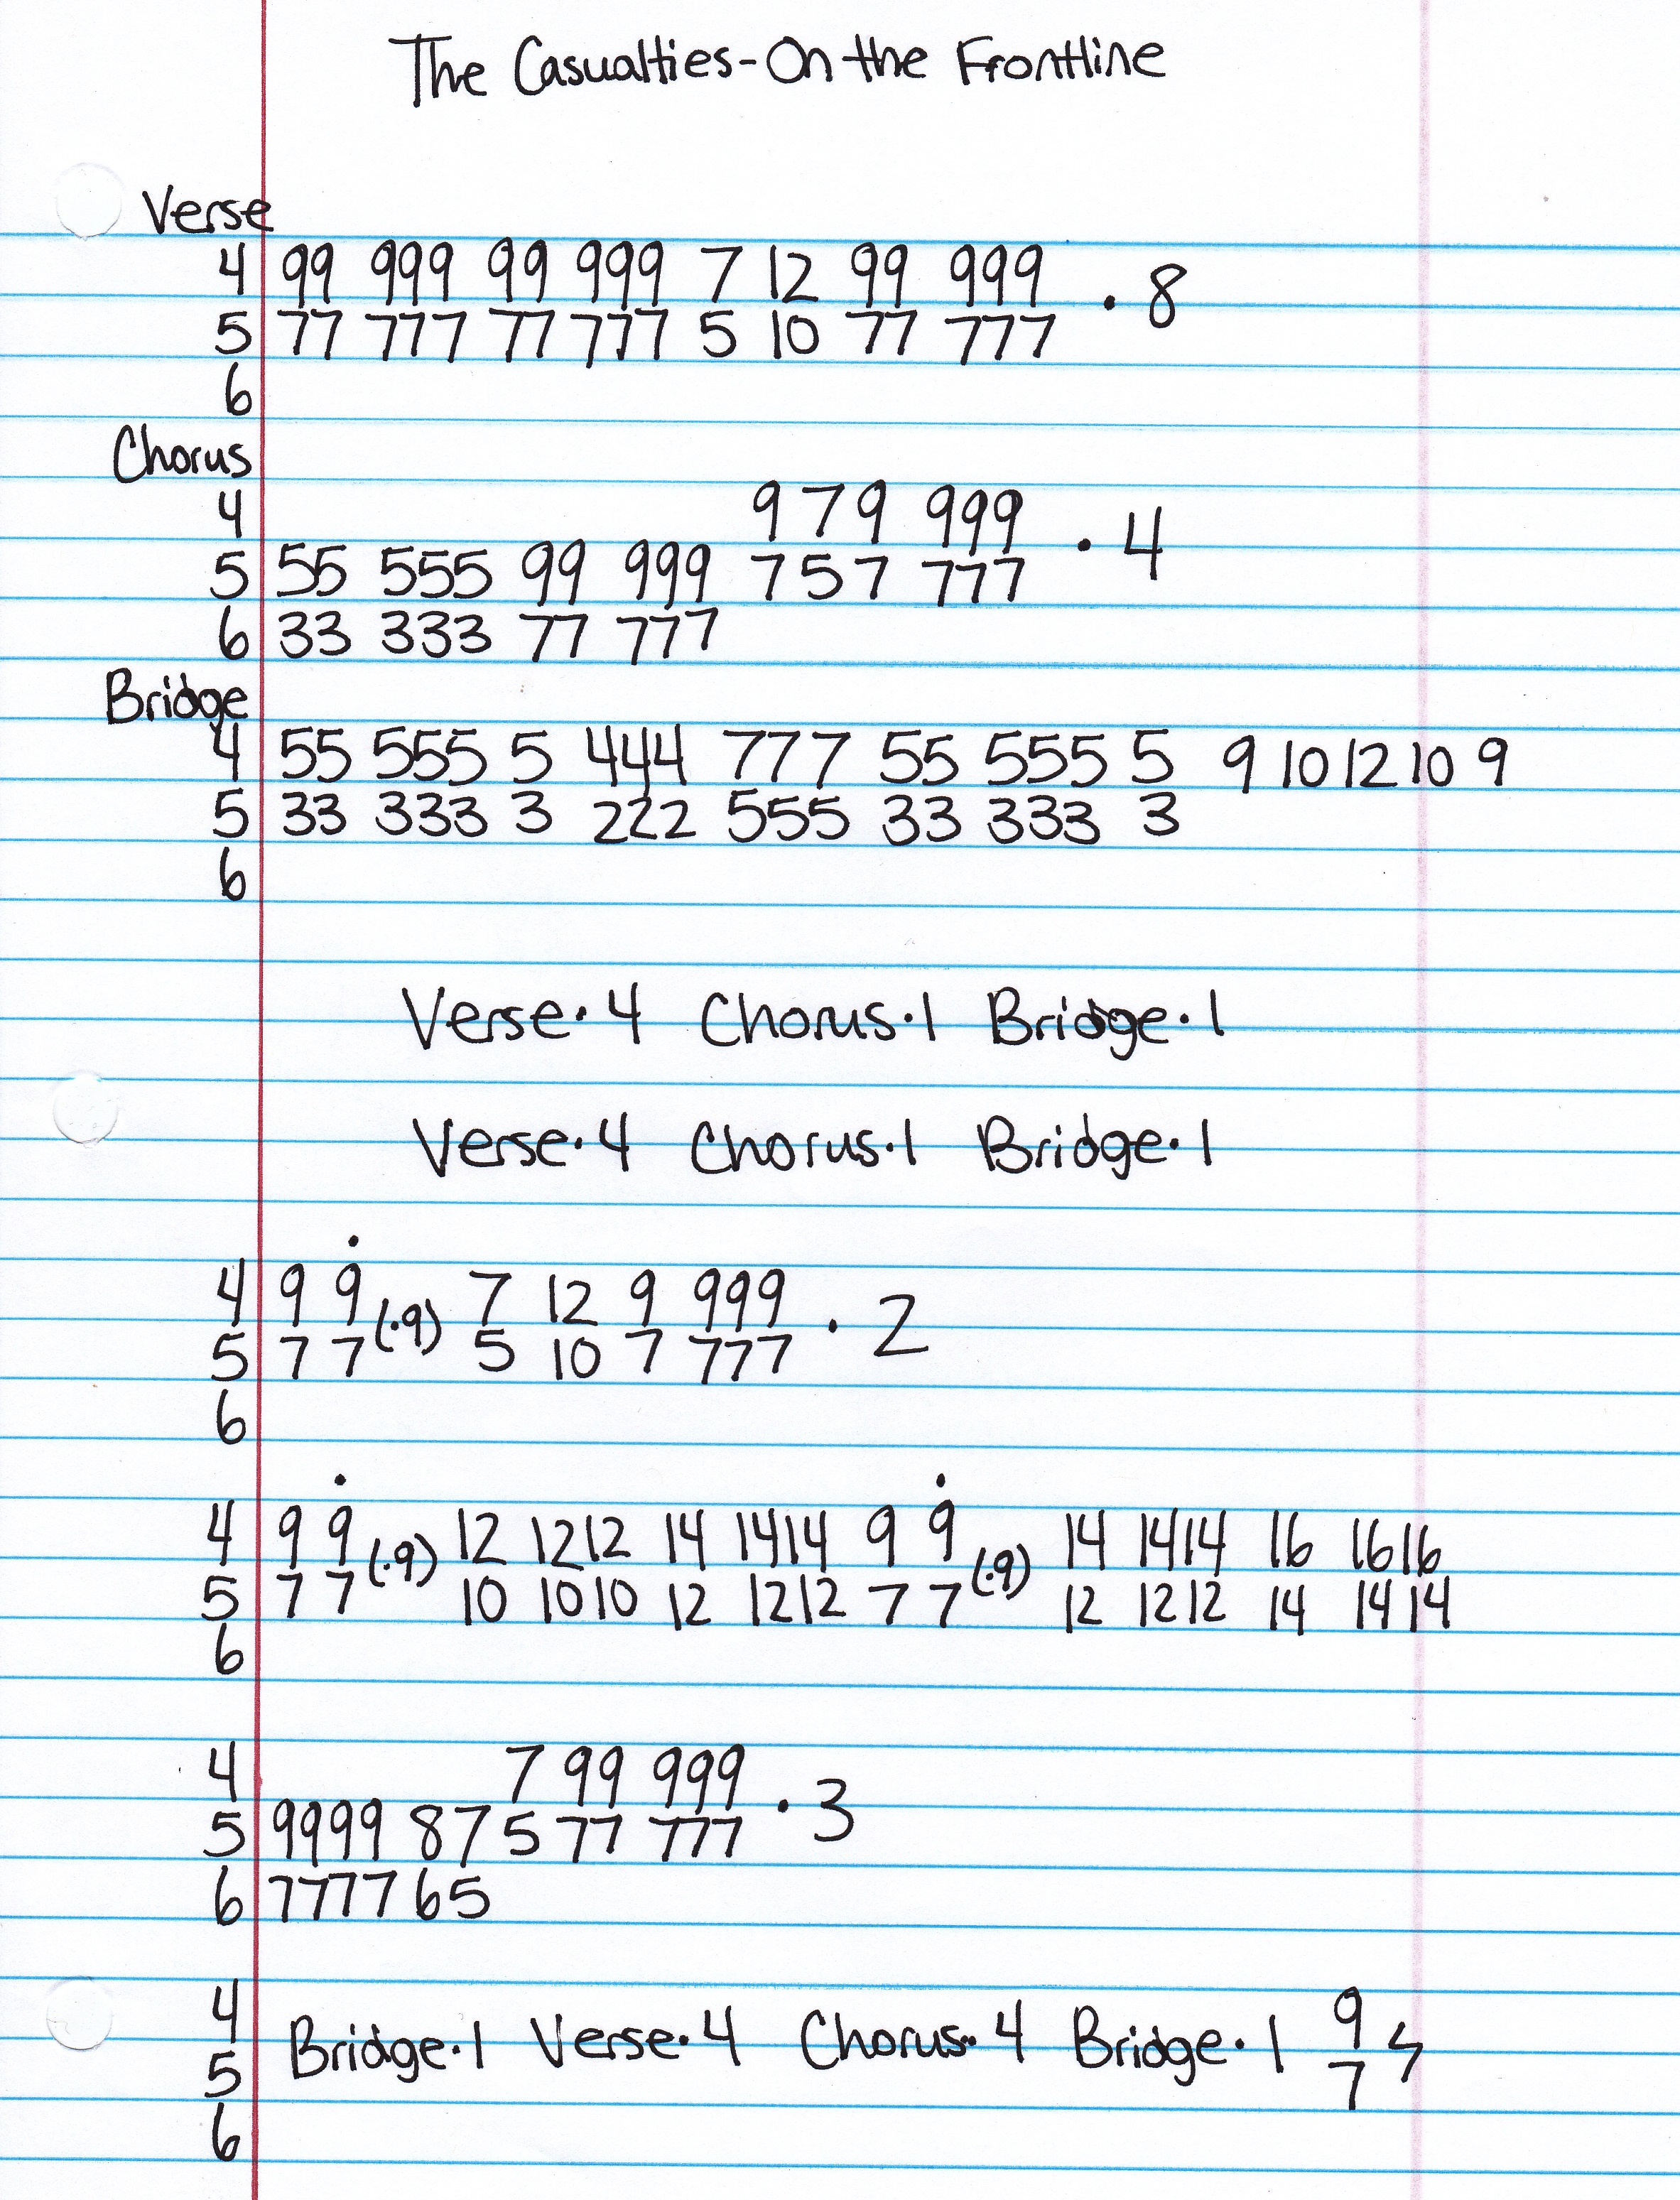 The Casualties-On the Frontline
Verse
4 99 999 99 999 7 12 99 999 · 8
5 77 777 77 777 5 10 77 777
6
Chorus
4 9 7 9 999 · 4
5 55 555 99 999 7 5 7 777
6 33 333 77 777
Bridge
4 55 555 5 444 777 55 555 5 9 10 12 10 9
5 33 333 3 222 555 33 333 3
6
Verse·4 Chorus·1 Bridge·1
Verse·4 Chorus·1 Bridge·1
4 9 9̇ (·9) 7 12 9 999 · 2
5 7 7 5 10 7 777
6
4 9 9̇ (·9) 12 1212 14 1414 9 9̇ (·9) 14 1414 16 1616
5 7 7 10 1010 12 1212 7 7 12 1212 14 1414
6
4 7 99 999 · 3
5 9999 87 5 77 777
6 7777 65
4 9
Bridge·1 Verse·4 Chorus·4 Bridge·1
5 7
6